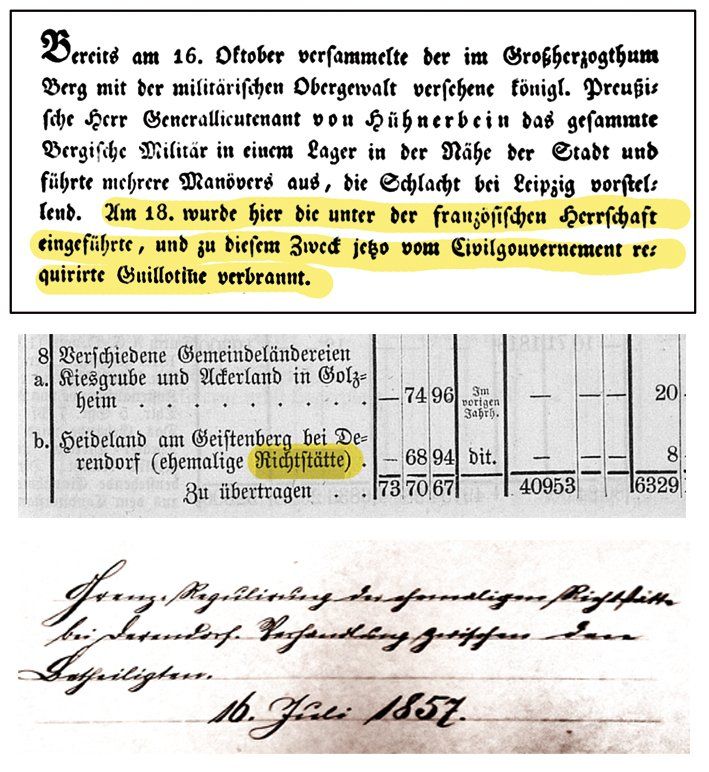 Bereits am 16. Oktober versammelte der im Großherzogthum
Berg mit der militärischen Obergewalt versehene königl. Preußi-
sche Herr Generallieutenant von Hühnerbein das gesammte
Bergische Militär in einem Lager in der Nähe der Stadt und
führte mehrere Manövers aus, die Schlacht bei Leipzig vorstel-
lend. Am 18. wurde hier die unter der französischen Herrschaft
eingeführte, und zu diesem Zweck jetzo vom Civilgouvernement re-
quirirte Guillotine verbrannt.
8 Verschiedene Gemeindeländereien
a. Kiesgrube und Ackerland in Golz-
heim . . . . . . . . — 74 96 Im vorigen Jahrh. — — — 20
b. Heideland am Geistenberg bei De-
rendorf (ehemalige Richtstätte) . — 68 94 dit. — — — 8
Zu übertragen . 73 70 67 40953 6329
Grenz-Regulirung der ehemaligen Richtstätte
bei Derendorf. Verhandlung zwischen den
Betheiligten.
16. Juli 1857.